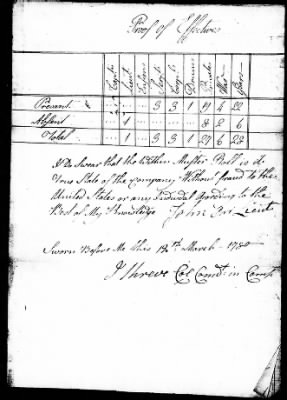 Proof of Effectives
Capts Lieut Ensigns Serjts Corpls Drums
Present 3 3 1 4 22
Absent 1 2 6
Total 1 3 3 1 6 28
I Do Swear that the Within Muster Roll is a
True State of the Company Without fraud to the
United States or any Individal According to the
Best of My Knowledge John Lieut
Sworn Before Me this March 1780
I Shreve Col Comdt in Camp